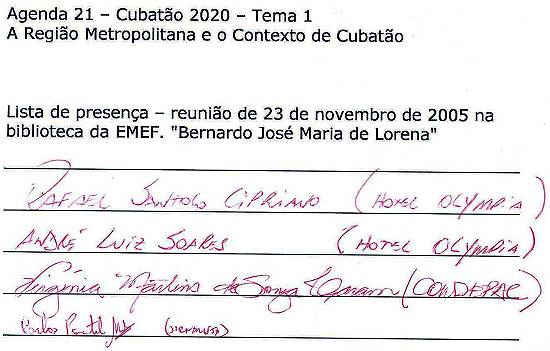 Agenda 21 – Cubatão 2020 – Tema 1
A Região Metropolitana e o Contexto de Cubatão
Lista de presença – reunião de 23 de novembro de 2005 na
biblioteca da EMEF. "Bernardo José Maria de Lorena"
RAFAEL SANTOLO CIPRIANO (HOTEL OLYMPIA)
ANDRÉ LUIZ SOARES (HOTEL OLYMPIA)
Virgínia Martins de Souza (CONDEPAC)
Carlos